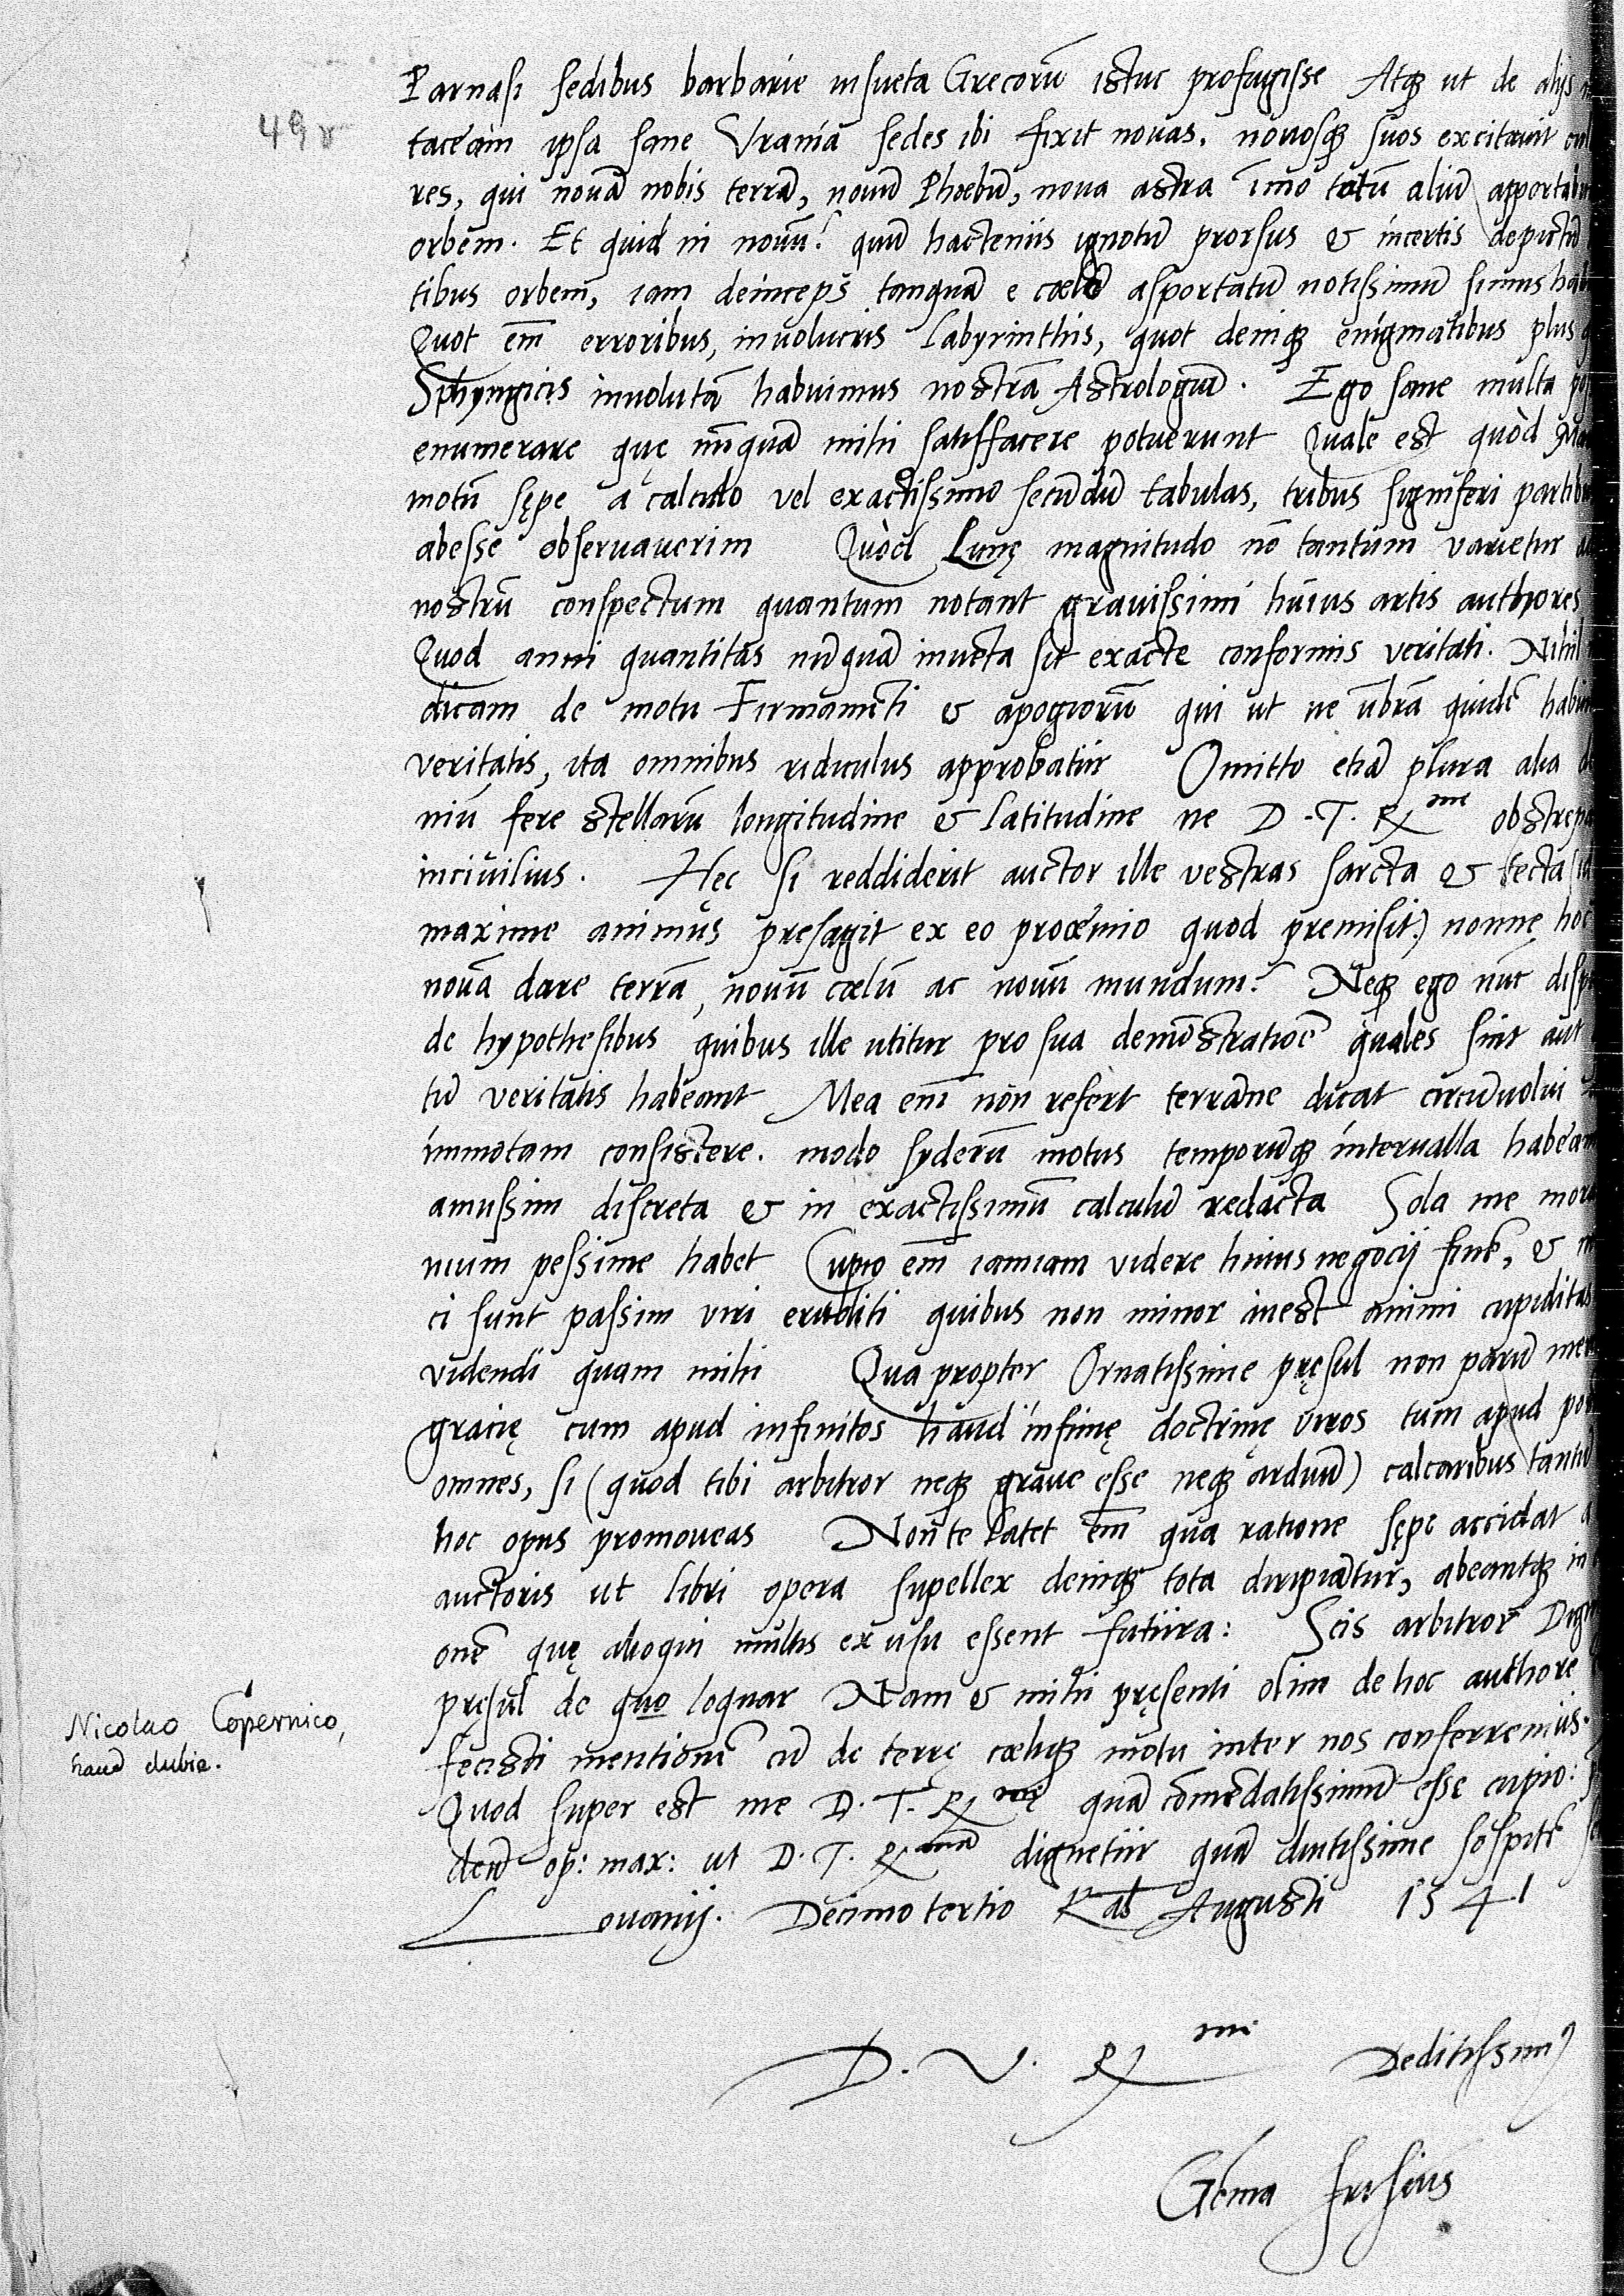 Parnasi sedibus barbarie insueta Grecorū istuc profugisse Atq̨ ut de alijs
49 v
taceam ipsa sane Vrania sedes ibi fixit novas. novosq̨ suos excitavit
res, qui novā nobis terrā, novū Phœbū, nova astra īmo totū aliū apportabūt
orbem. Et quid ni novū? quū hactenus ignotū prorsus & incertis depictū
tibus orbem, iam deinceps tanquā e cœlo asportatū notissimū simus
Quot em̄ erroribus, involucris Labyrinthis, quot deniq̨ enigmatibus plus
Sphyngicis involutā habuimus nostrā Astrologiā. Ego sane multa
enumerare quę nūquā mihi satisfacere potuerunt Quale est quòd
motū sępe a calculo vel exactissimo secūdū tabulas, tribus signiferi partibus
abesse observaverim Quòd Lunę magnitudo nō tantum varietur
nostrū conspectum quantum notant gravissimi huius artis authores
Quod anni quantitas nūquā invēta sit exacte conformis veritati. Nihil
dicam de motu Firmamēti & apogiorū qui ut ne ūbrā quidē
veritatis, ita omnibus ridiculus approbatur Omitto etiā plura alia
niū fere stellarū longitudine & latitudine ne D. T. R me
incivilius. Hęc si reddiderit auctor ille vestras sarcta & tecta
maxime animus presagit ex eo proœmio quod premisit) nonne hoc
novā dare terrā, novū cœlū ac novū mundum? Neq̨ ego nūc
de hypothesibus quibus ille utitur pro sua demōstratioē quales sint aut
tū veritatis habeant Mea em̄ non refert terrāne dicat circūvolui
immotam consistere. modo syderū motus temporūq̨ intervalla
amussim discreta & in exactissimū calculū redacta Sola me
nium pessime habet Cupio em̄ iamiam videre huius negocij finē, &
ci sunt passim viri eruditi quibus non minor inest animi cupiditas
videndi quam mihi Qua propter Ornatissime pręsul non parū
gracię cum apud infinitos haud infimę doctrinę viros tum apud
omnes, si (quod tibi arbitror neq̨ grave esse neq̨ arduū) calcaribus
hoc opus promoveas Non te latet em̄ qua ratione sępe accidat
auctoris ut libri opera supellex deniq̨ tota diripiātur, abeantq̨ in
onē quę alioqui multis ex usu essent futura: Scis arbitror
pręsul de quo loquar Nam & mihi pręsenti olim de hoc authore
Nicolao Copernico,
haud dubie.
fecisti mentionē cū de terrę cœliq̨ motu inter nos conferremus.
Quod super est me D. T. R mę quā cōmēdatissimū esse cupio:
deū op: max: ut D. T. R mā dignetur quā diutissime sospitē
Lovanij. Decimo tertio Kal Augusti 1541
D. V. R mi Deditissimus
Gēma Frisius